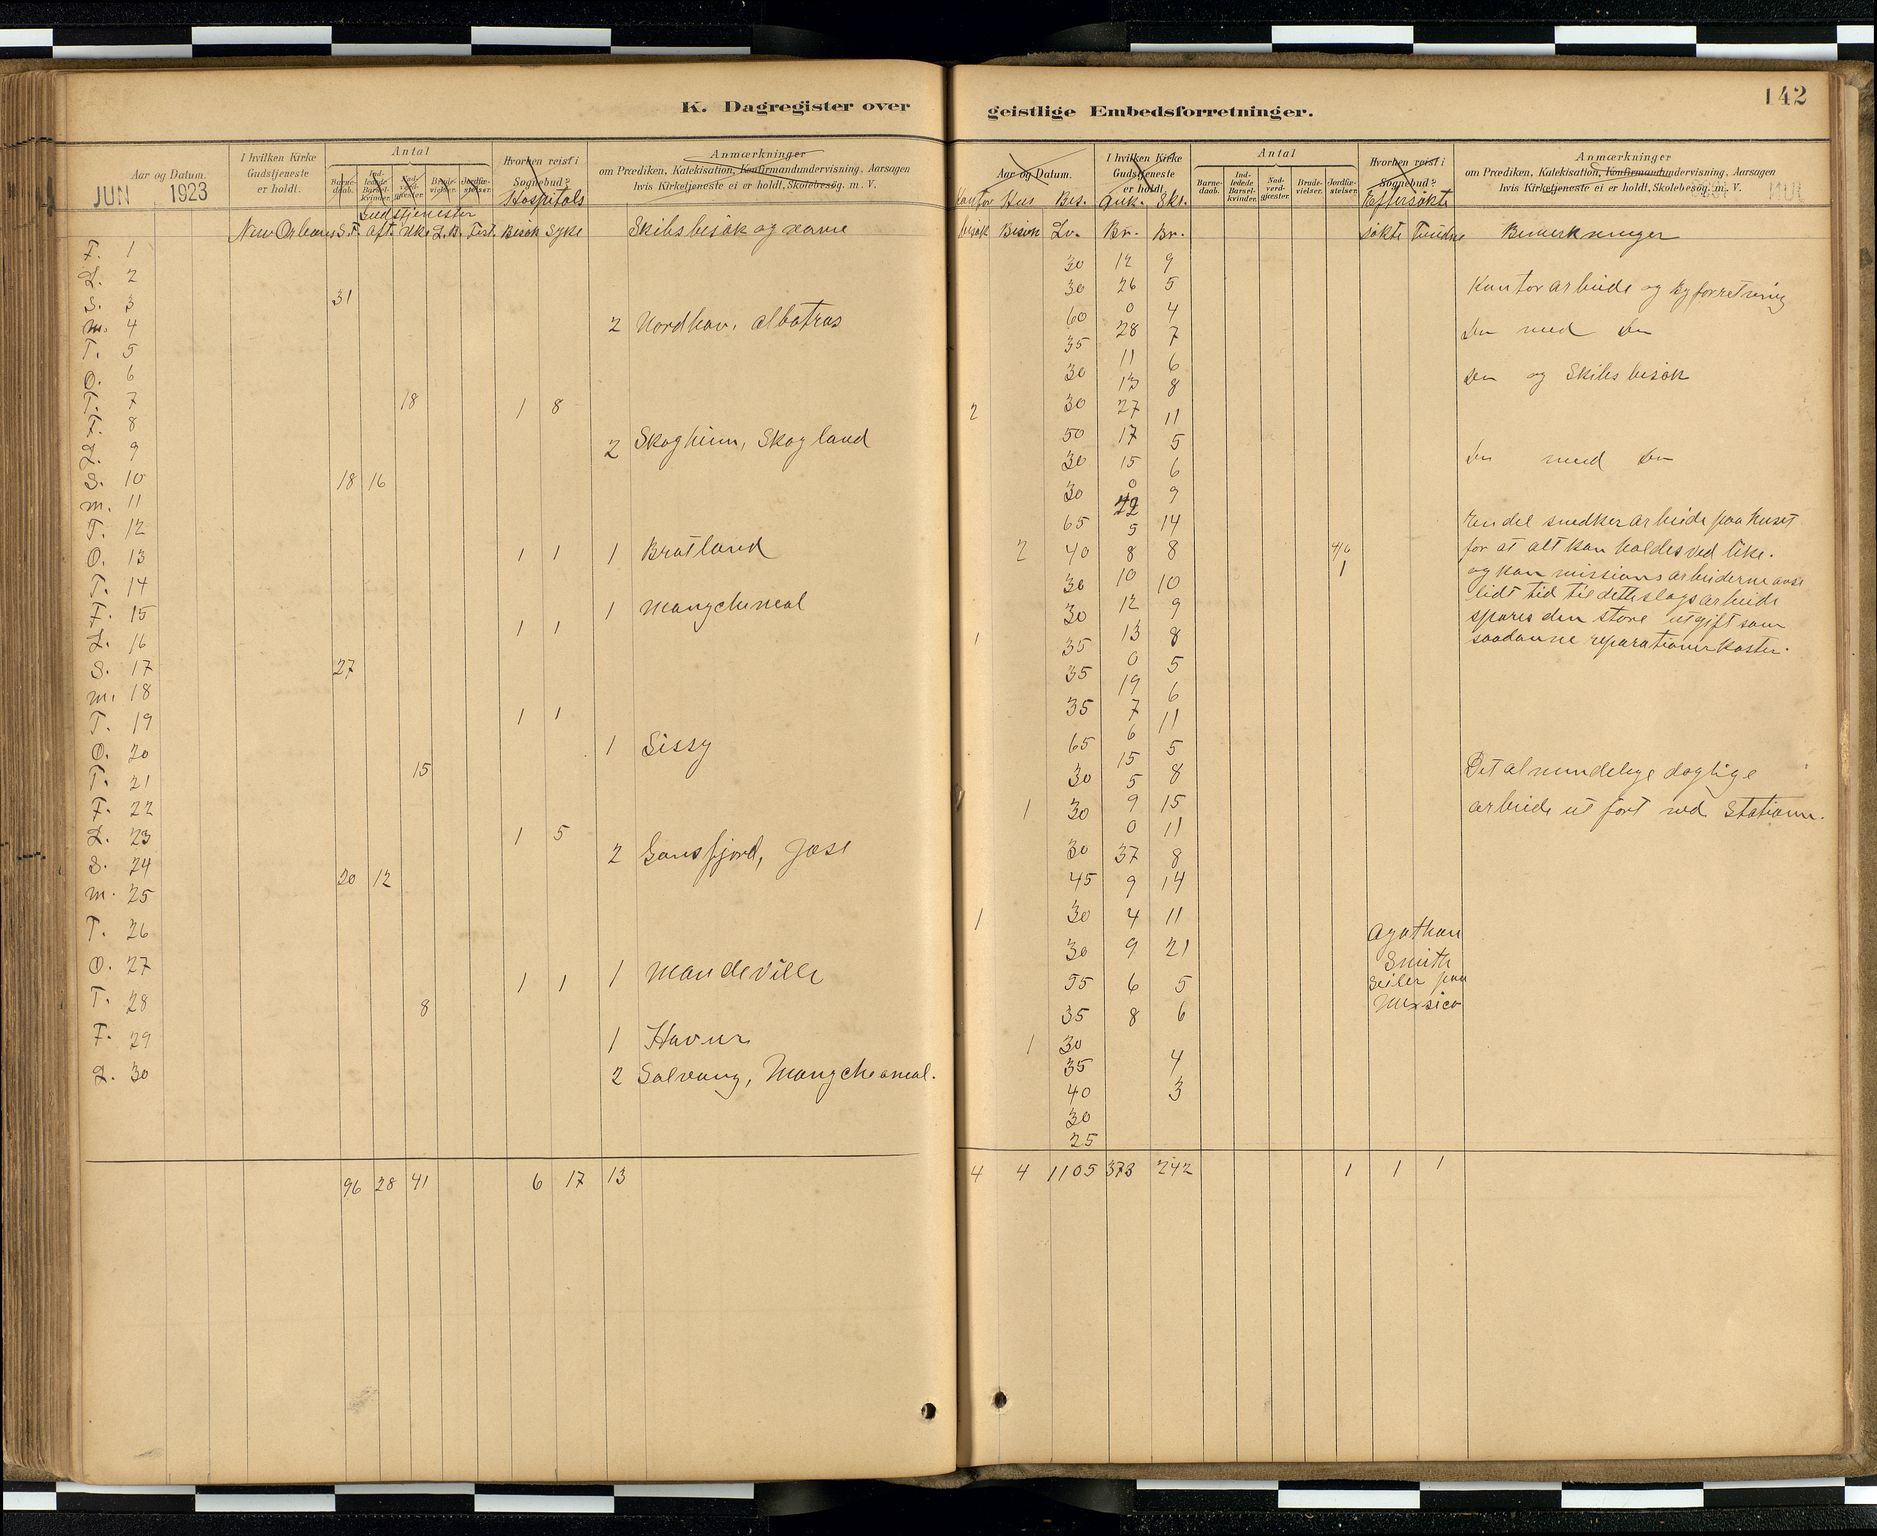 K. Dagregister over geistlige Embedsforretninger.
142
Aar og Datum.
I hvilken Kirke Gudstjeneste er holdt.
Antal
Barnedaab.
Indledede Barselkvinder.
Nadverdgjester.
Brudevielser.
Jordfæstelser.
Hvorhen reist i Sognebud?
Anmærkninger
om Prædiken, Katekisation, Konfirmandundervisning, Aarsagen
hvis Kirketjeneste ei er holdt, Skolebesøg. m. V.
JUN 1923
Hospitals
Gudstjenester
New Orleans S.F. Aft. Uke L.B. Fest. Besøk Syke Skibsbesøk og navne
F. 1
L. 2
S. 3 31
M. 4 2 Nordhav, Albatros
T. 5
O. 6
T. 7 18 1 8
F. 8
L. 9 2 Skogheim, Skogland
S. 10 18 16
M. 11
T. 12
O. 13 1 1 1 Bratland
T. 14
F. 15 1 Mangcheneal
L. 16 1 1
S. 17 27
M. 18
T. 19 1 1
O. 20 1 Sissy
T. 21 15
F. 22
L. 23 1 5
S. 24 2 Gansfjord, Jose
M. 25 20 12
T. 26
O. 27 1 1 1 Mandeville
T. 28 8
F. 29 1 Havur
L. 30 2 Solvang, Mangcheaneal.
96 28 41 6 17 13
Aar og Datum.
I hvilken Kirke Gudstjeneste er holdt.
Antal
Barnedaab.
Indledede Barselkvinder.
Nadverdgjester.
Brudevielser.
Jordfæstelser.
Hvorhen reist i Sognebud?
Anmærkninger
om Prædiken, Katekisation, Konfirmandundervisning, Aarsagen
hvis Kirketjeneste ei er holdt, Skolebesøg. m. V.
Kontor Hus Bes. Ank. Skr. Eftersøkte
besøk Besøk Lv. Br. Br. søkte Fundne Bemerkninger
30 12 9
30 26 5 Kontorarbeide og byforretning
60 0 4
35 28 7 Den med Den
30 11 6
30 13 8 Den og Skibsbesøk
2 50 27 11
30 17 5
30 15 6 Den med Den
65 0 9
40 22 14 Endel snedker arbeide paa huset
2 30 5 8 4/6 for at alt kan holdes ved like.
30 8 10 1 og kan missions arbeiderne avse
35 10 9 lidt tid til dette slags arbeide
35 12 8 spares den store utgift som
1 35 13 5 saadanne reparationer koster.
65 0 6
30 19 11
1 30 7 5
30 6 8 Det almindelige daglige
45 15 15 arbeide ut ført ved Stationen.
30 5 11
30 9 8
55 0 14
1 35 37 11 Agathon
30 9 21 Smith
35 4 5 Seiler paa
40 9 6 Mexico
1 30 6 4
25 8 3
4 4 1105 373 242 1 1 1